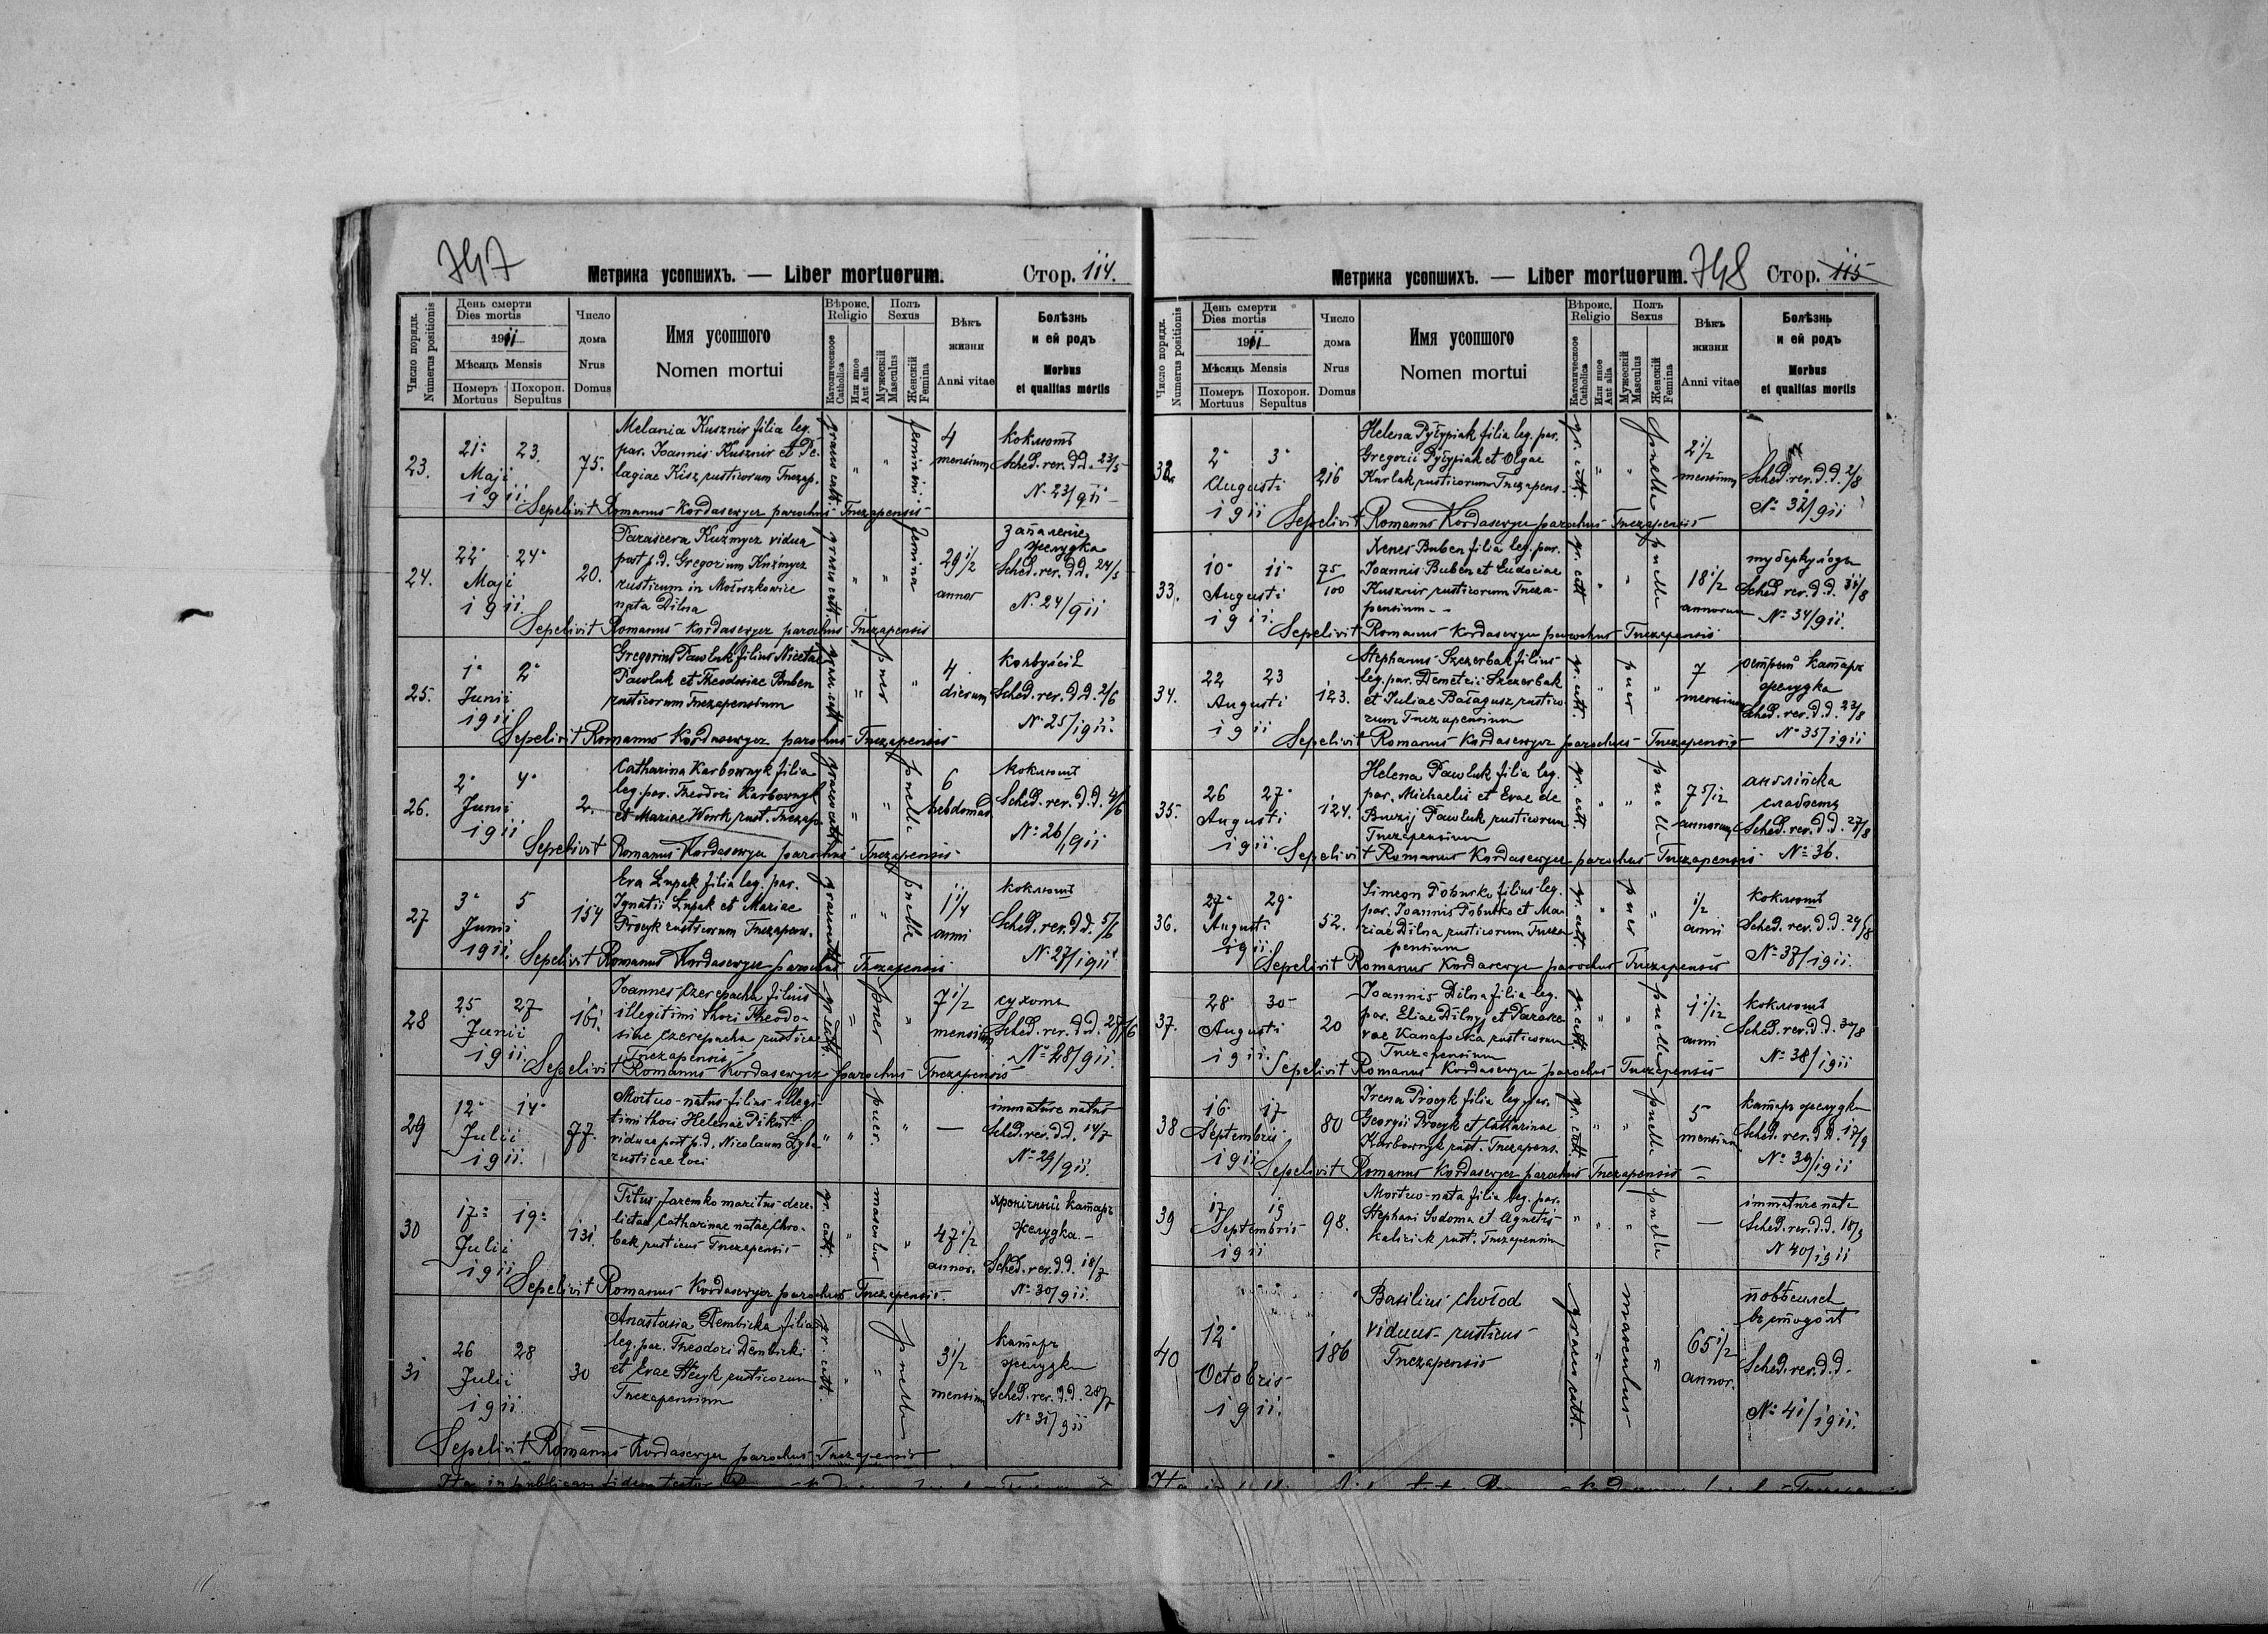 747
Метрика усопшихъ. — Liber mortuorum.
Стор. 114.
Число порядк.
Numerus positionis
День смерти
Dies mortis
1911
Мѣсяць Mensis
Померъ
Mortuus
Похорон.
Sepultus
Число
дома
Nrus
Domus
Имя усопшого
Nomen mortui
Вѣроис.
Religio
Католическое
Catholica
Или иное
Aut alia
Полъ
Sexus
Мужескій
Masculus
Женскій
Femina
Вѣкъ
жизни
Anni vitae
Болѣзнь
и ей родъ
Morbus
et qualitas mortis
23.
21. 23.
Maji
1911
75.
Melania Kusznir filia leg.
par. Joannis Kusznir et Pe-
lagiae Kisz rusticorum Tnezap.
graeco catt.
"
"
feminini
4
mensium
коклюшъ
Sched. rer. d.d. 23/5
N. 23/911
Sepelivit Romanus Kordasewycz parochus Tnezapensis
24.
22. 24.
Maji
1911.
20.
Parasceva Kuźmycz vidua
post p.d. Gregorium Kuźmycz
rusticum in Mołoszkowice
nata Dilna
graeco catt.
"
"
femina
29 1/2
annor
запаление
желудка
Sched. rer. d.d. 24/5
N. 24/911
Sepelivit Romanus Kordasewycz parochus Tnezapensis
25.
1. 2.
Junii
1911
Gregorius Pawluk filius Nicetae
Pawluk et Theodosiae Buben
rusticorum Tnezapensium
graeco catt
"
puer
"
4
dierum
Sched. rer. d.d. 2/6
N. 25/1911.
Sepelivit Romanus Kordasewycz parochus Tnezapensis
26.
2. 4.
Junii
1911
2.
Catharina Karbownyk filia
leg. par. Theodori Karbownyk
et Mariae Wowk rust. Tnezap.
graeco catt.
"
"
puella
6
hebdomad
коклюшъ
Sched. rer. d.d. 4/6
N. 26/911
Sepelivit Romanus Kordasewycz parochus Tnezapensis
27
3. 5
Junii
1911.
154
Eva Łupak filia leg. par.
Ignatii Łupak et Mariae
Procyk rusticorum Tnezapens.
graeco catt.
"
"
puella
1 1/4
anni
коклюшъ
Sched. rer. d.d. 5/6
N. 27/1911
Sepelivit Romanus Kordasewycz parochus Tnezapensis
28
25 27
Junii
1911.
161.
Joannes Czerepacha filius
illegitimi thori Theodo-
siae Czerepacha rusticae
Tnezapensis
gr. catt.
"
puer
"
7 1/2
mensium
сухоты
Sched. rer. d.d. 27/6
N. 28/911.
Sepelivit Romanus Kordasewycz parochus Tnezapensis
29
12. 14.
Julii
1911.
77.
Mortuo-natus filius illegi-
timi thori Helenae Pikut
viduae post p.d. Nicolaum Łyba
rusticae loci
"
"
puer.
"
—
immature natus
Sched. rer. d.d. 14/7
N. 29/911.
30
17. 19.
Julii
1911
131.
Titus Jaremko maritus dere-
lictae Catharinae natae Chro-
bak rusticus Tnezapensis
gr. catt.
"
masculus
"
47 1/2
annor.
хронічний катаръ
желудка
Sched. rer. d.d. 18/7
N. 30/911.
Sepelivit Romanus Kordasewycz parochus Tnezapensis.
31
26 28
Julii
1911
30
Anastasia Dembicka filia
leg. par. Theodori Dembicki
et Evae Stecyk rusticorum
Tnezapensium
gr. catt.
"
"
puella
3 1/2
mensium
катаръ
желудка
Sched. rer. d.d. 28/7
N. 31/911
Sepelivit Romanus Kordasewycz parochus Tnezapensis
Ita in publicam fidem testor
Метрика усопшихъ. — Liber mortuorum.
748
Стор. 115
Число порядк.
Numerus positionis
День смерти
Dies mortis
1911
Мѣсяць Mensis
Померъ
Mortuus
Похорон.
Sepultus
Число
дома
Nrus
Domus
Имя усопшого
Nomen mortui
Вѣроис.
Religio
Католическое
Catholica
Или иное
Aut alia
Полъ
Sexus
Мужескій
Masculus
Женскій
Femina
Вѣкъ
жизни
Anni vitae
Болѣзнь
и ей родъ
Morbus
et qualitas mortis
32
2. 3.
Augusti
1911
216
Helena Pyłypiak filia leg. par.
Gregorii Pyłypiak et Olgae
Kurlak rusticorum Tnezapens.
gr. catt.
"
"
puella
2 1/2
mensium
Sched. rer. d.d. 2/8
N. 32/911
Sepelivit Romanus Kordasewycz parochus Tnezapensis
33.
10. 11.
Augusti
1911.
75
100
Xenes Buben filia leg. par.
Joannis Buben et Eudociae
Kusznir rusticorum Tneza-
pensium
gr. catt
"
"
puella
18 1/2
annorum
туберкулёзъ
Sched. rer. d.d. 11/8
N. 34/911.
Sepelivit Romanus Kordasewycz parochus Tnezapensis
34.
22 23
Augusti
1911
123.
Stephanus Szczerbak filius
leg. par. Demetrii Szczerbak
et Juliae Bałagusz rustico-
rum Tnezapensium
gr. catt.
"
puer
"
7
mensium
острый катаръ
желудка
Sched. rer. d.d. 23/8
N. 35/1911
Sepelivit Romanus Kordasewycz parochus Tnezapensis
35.
26 27.
Augusti
1911.
124.
Helena Pawluk filia leg.
par. Michaelis et Evae de
Buczij Pawluk rusticorum
Tnezapensium
gr. catt.
"
"
puella
7 5/12
annorum
англійска
слабость
Sched. rer. d.d. 27/8
N. 36.
Sepelivit Romanus Kordasewycz parochus Tnezapensis
36.
27. 29.
Augusti
1911.
52.
Simeon Poburko filius leg.
par. Joannis Poburko et Ma-
riae Dilna rusticorum Tneza-
pensium
gr. catt
"
puer
"
1/2
anni
коклюшъ
Sched. rer. d.d. 29/8
N. 37/1911.
Sepelivit Romanus Kordasewycz parochus Tnezapensis
37.
28. 30
Augusti
1911.
20
Joannis Dilna filia leg.
par. Eliae Dilnyj et Parasce-
vae Kanafocka rusticorum
Tnezapensium
gr. catt.
"
"
puella
1 1/12
anni
коклюшъ
Sched. rer. d.d. 30/8
N. 38/1911
Sepelivit Romanus Kordasewycz parochus Tnezapensis
38
16. 17.
Septembris
1911
80
Irena Procyk filia leg. par.
Georgii Procyk et Catharinae
Karbownyk rust. Tnezapens.
gr. catt.
"
"
puella
5
mensium
катаръ желудка
Sched. rer. d.d. 17/9
N. 39/1911
Sepelivit Romanus Kordasewycz parochus Tnezapensis
39
17 19
Septembris
1911
98.
Mortuo-nata filia leg. par.
Stephani Sodoma et Agnetis
Kaliciak rust. Tnezapensium
"
"
"
puella
—
immature nata
Sched. rer. d.d. 18/9
N 40/1911
40
12.
Octobris
1911.
186
Basilius Chołod
viduus rusticus
Tnezapensis
graeco catt.
"
masculus
"
65 1/2
annor.
повѣсился
въ стодолѣ
Sched. rer. d.d.
N. 41/1911.
Ita